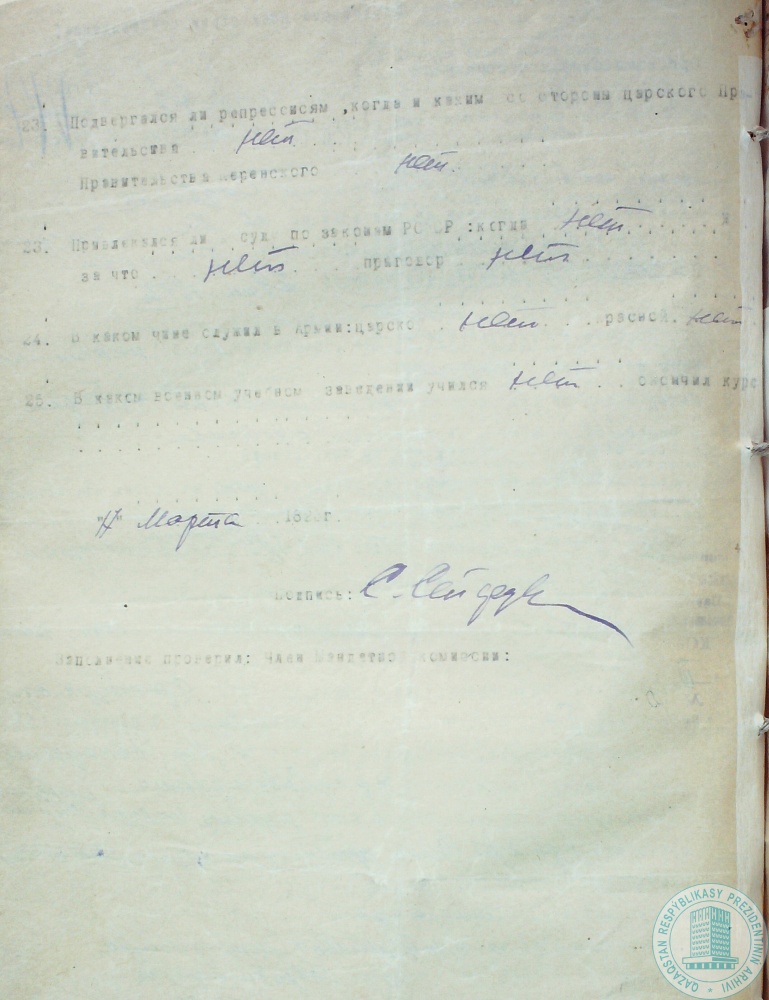 23. Подвергался ли репрессиям ,когда и каким со стороны Царского Пра-
вительства . нет . . . . . . . . . . .
Правительства Керенского . . . нет. . . . .
23. Привлекался ли суду по законам РСФСР :когда нет . . . . . и
за что . . . нет . . . . приговор . . нет . . . . . . .
24. В каком чине служил в Армии:царской . . нет . . . красной. нет .
25. В каком военном учебном заведении учился нет . . окончил курс
. . . . . . . . . . . . . . .
. . . . . . . . . . . . . . .
Марта . . 192 г.
Подпись: С. Сейфул
Заполнение проверил: Член Мандатной комиссии:
QAZAQSTAN RESPÝBLIKASY PREZIDENTINIŃ ARHIVI